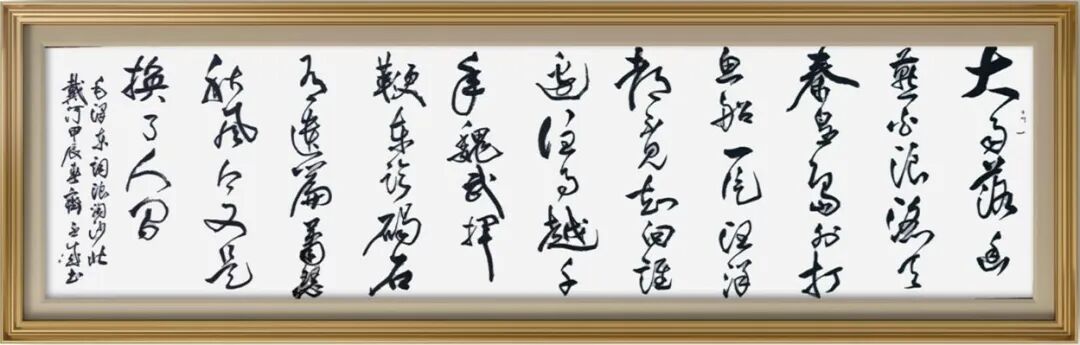 大雨落幽
燕白浪滔天
秦皇岛外打
鱼船一片汪洋
都不见知向谁
边往事越千
年魏武挥
鞭东临碣石
有遗篇萧瑟
秋风今又是
换了人间
毛泽东词浪淘沙北
戴河甲辰春书